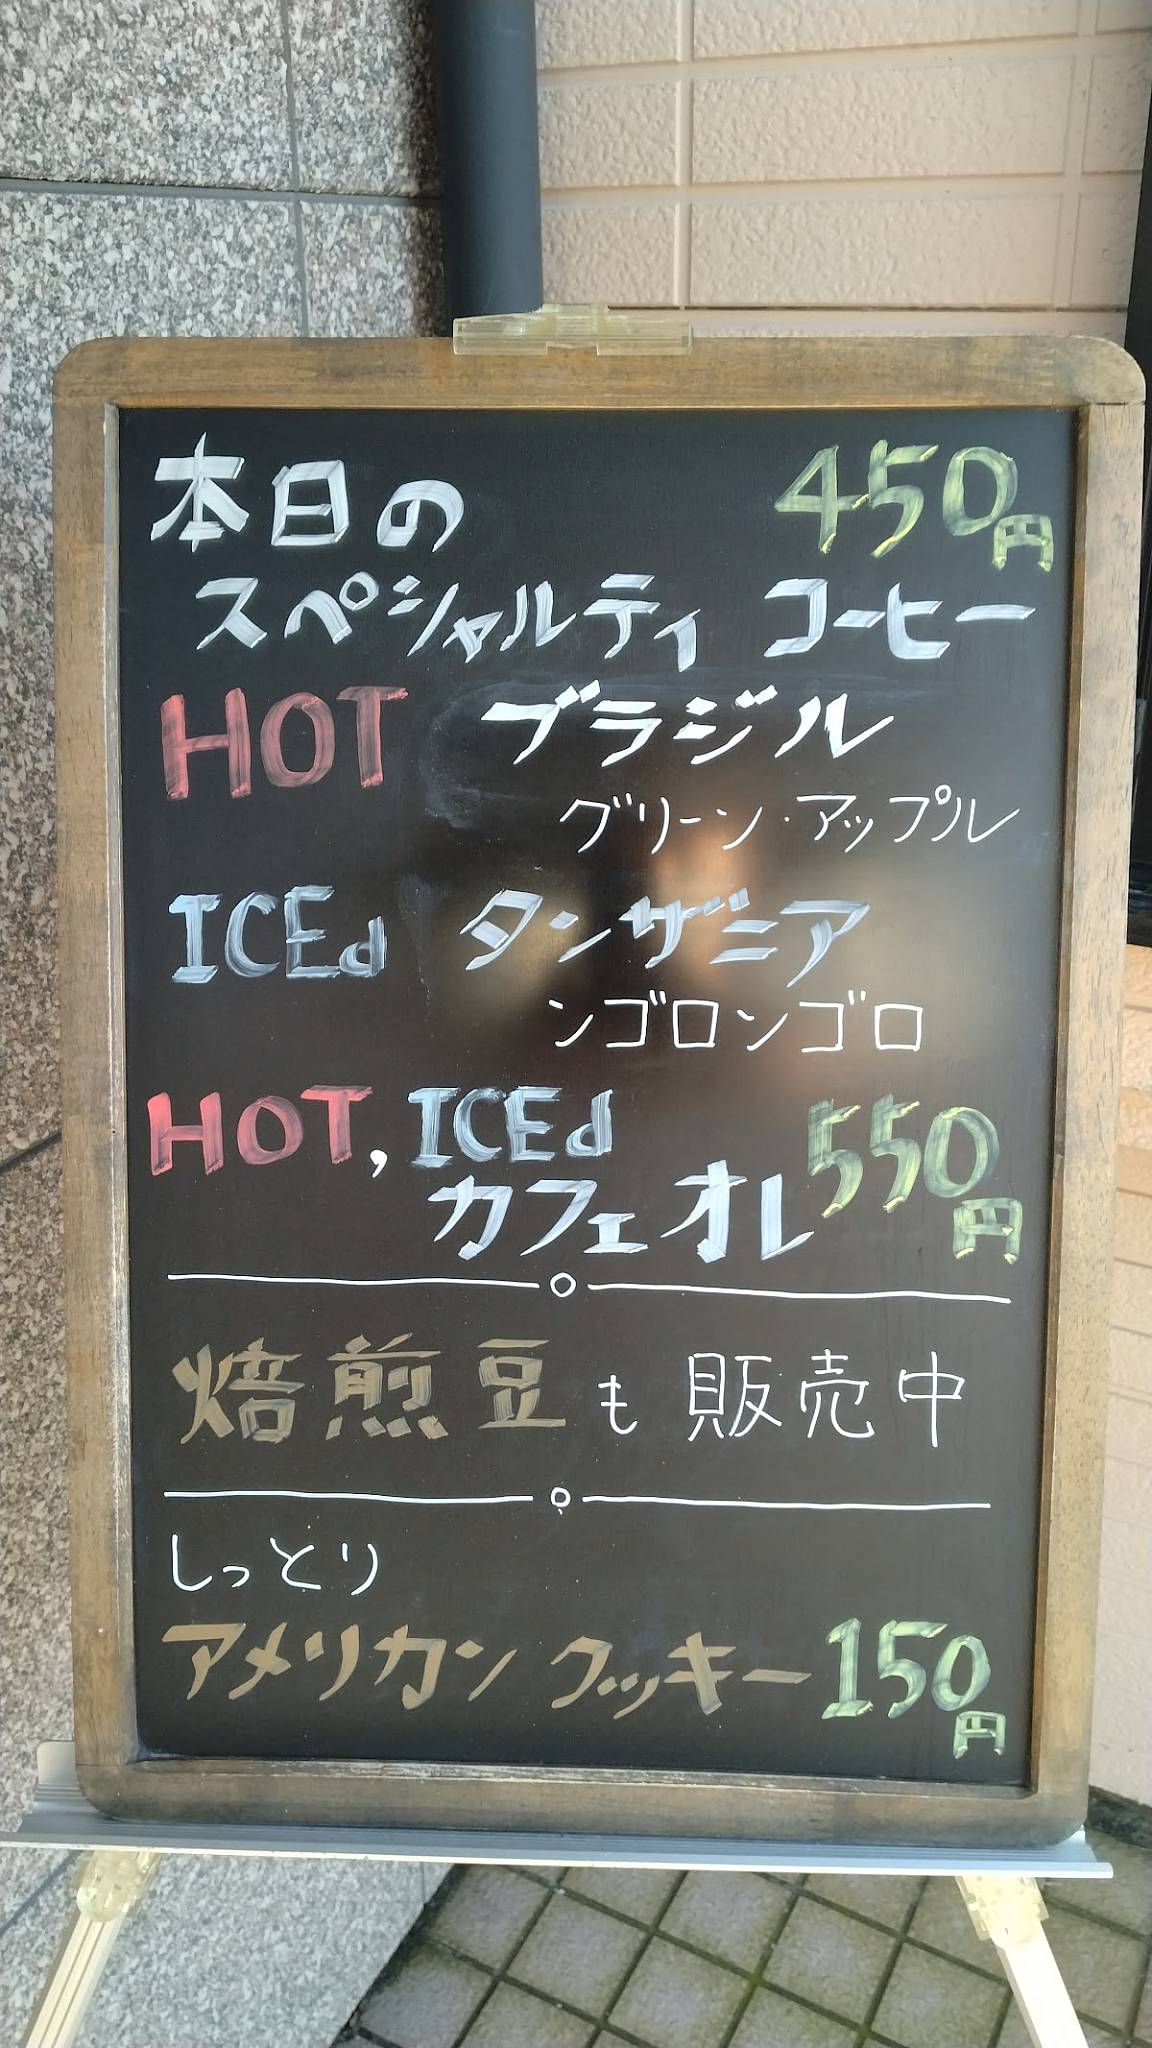 本日の 450円
スペシャルティ コーヒー
HOT ブラジル
グリーン・アップル
ICEd タンザニア
ンゴロンゴロ
HOT, ICEd 550円
カフェオレ
焙煎豆も販売中
しっとり
アメリカン クッキー 150円